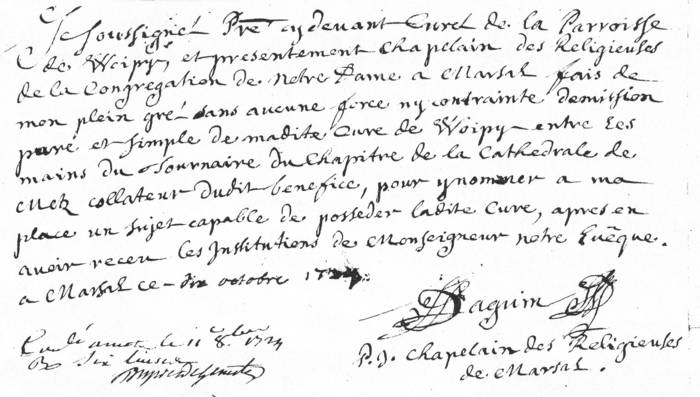 Je soussigné Pre cy devant Curé de la Parroisse
de Woipy, et presentement Chapelain des Religieuses
de la Congregation de Notre Dame a Marsal fais de
mon plein gré sans aucune force ny contrainte demission
pure et simple de madite Cure de Woipy entre les
mains du Tournaire du Chapitre de la Cathedrale de
Metz collateur dudit benefice, pour y nommer a ma
place un sujet capable de posseder ladite Cure, apres en
avoir receu les Institutions de Monseigneur notre Evêque.
a Marsal ce dix octobre 1724.
Daguin
P. J. Chapelain des Religieuses
de Marsal.
le 11 8bre 1724
six